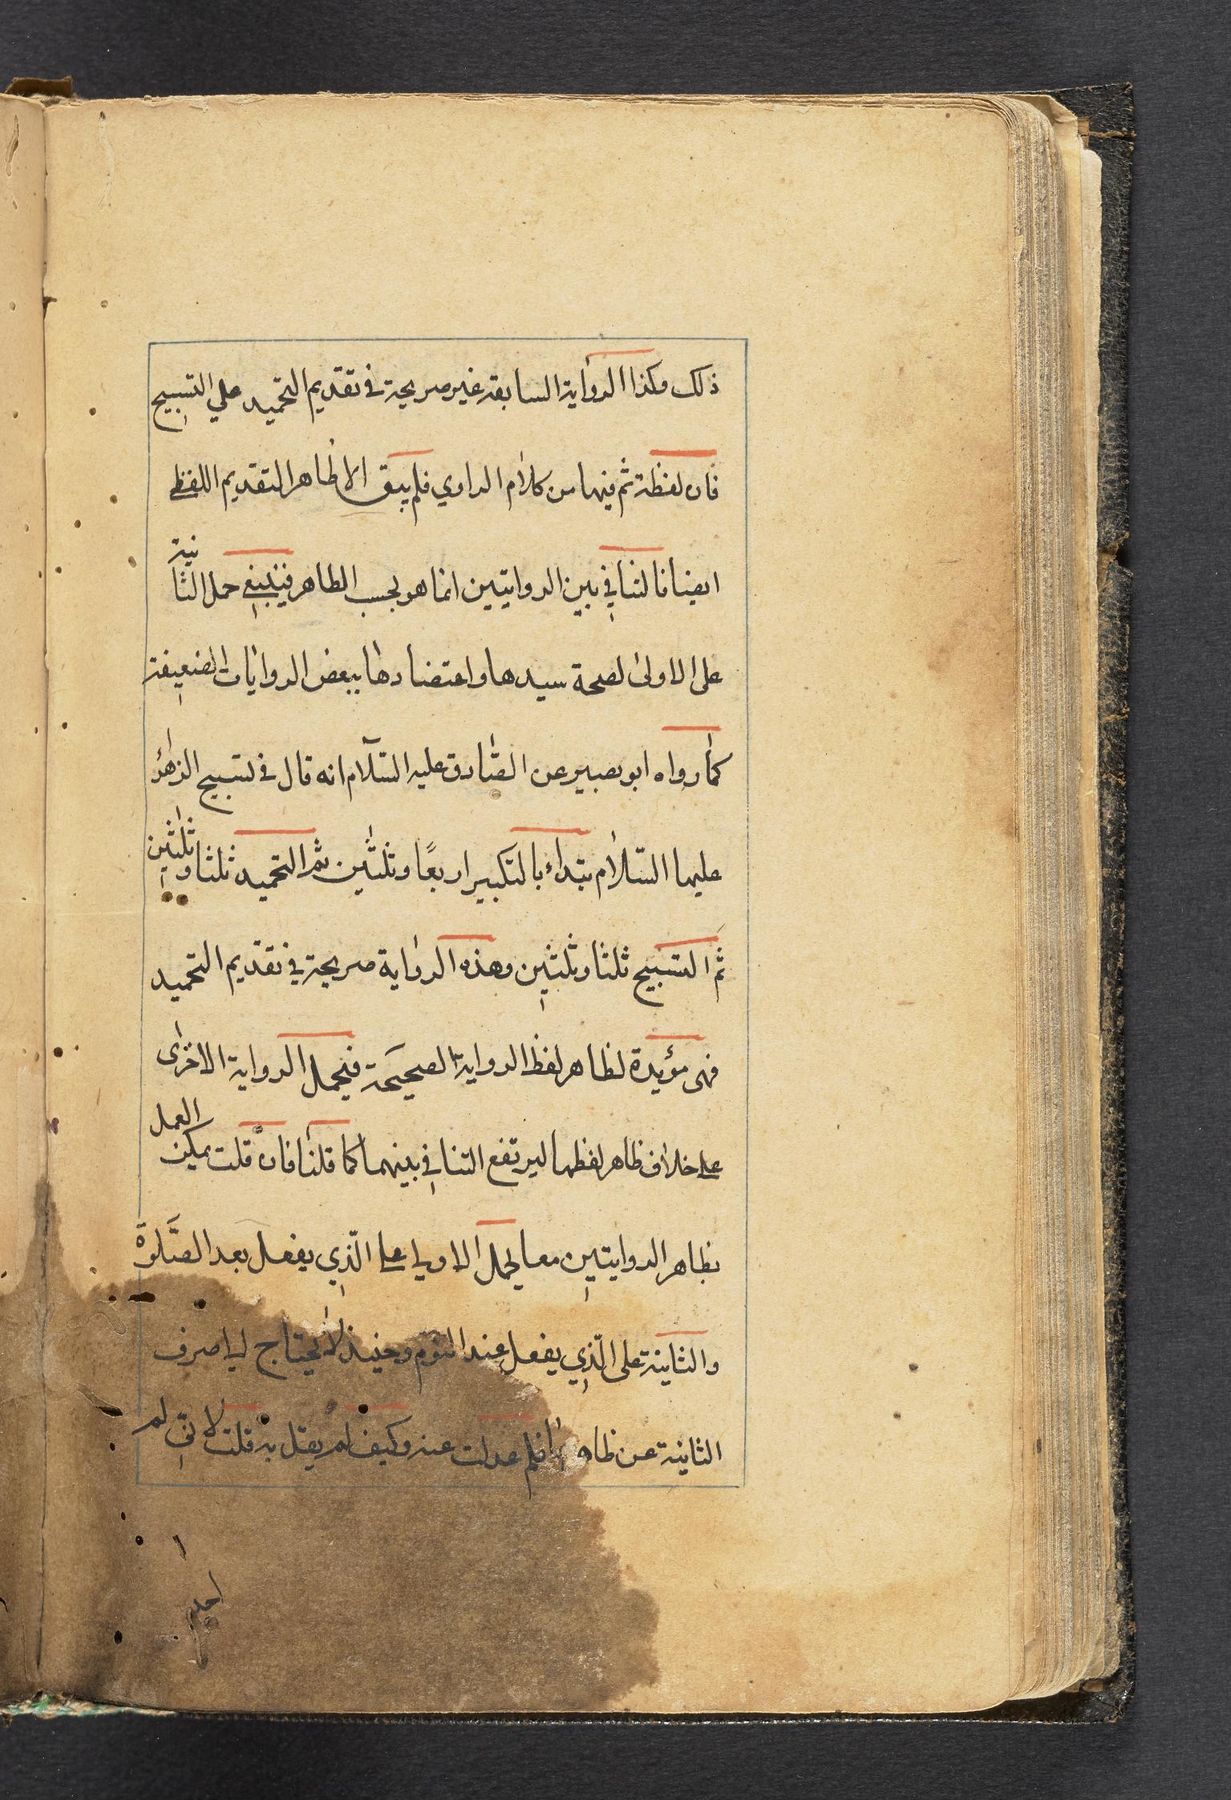 ذلك وكذا الرواية السابقة غير صريحة في تقديم التحميد علي التسبيح
فان لفظة ثم فيها من كلام الراوي فلم يبق الا ظاهر التقديم اللفظي
ايضا فالتنافي بين الروايتين انما هو بحسب الظاهر فينبغي حمل الثانية
على الاولى لصحة سيدها واعتضادها ببعض الروايات الضعيفة
كما رواه ابو بصير عن الصّادق عليه السّلام انه قال في تسبيح الزهراء
عليها السّلام تبتداء بالتكبير اربعًا وثلثين ثم التحميد ثلثا وثلثين
ثم التسبيح ثلثا وثلثين وهذه الرواية صريحة في تقديم التحميد
فهى مؤيدة لظاهر لفظ الرواية الصحيحة فيحمل الرواية الاخرى
على خلاف ظاهر لفظها ليرتفع التنافي بينهما كما قلنا فان قلت يمكن العمل
بظاهر الروايتين معا بحمل الاولى على الّذي يفعل بعد الصّلوة
والثانية على الّذي يفعل عند النوم وحينئذ لا يحتاج الى صرف
الثانية عن ظاهرها فلم عدلت عنه وكيف لم يقل به قلت لانّي لم